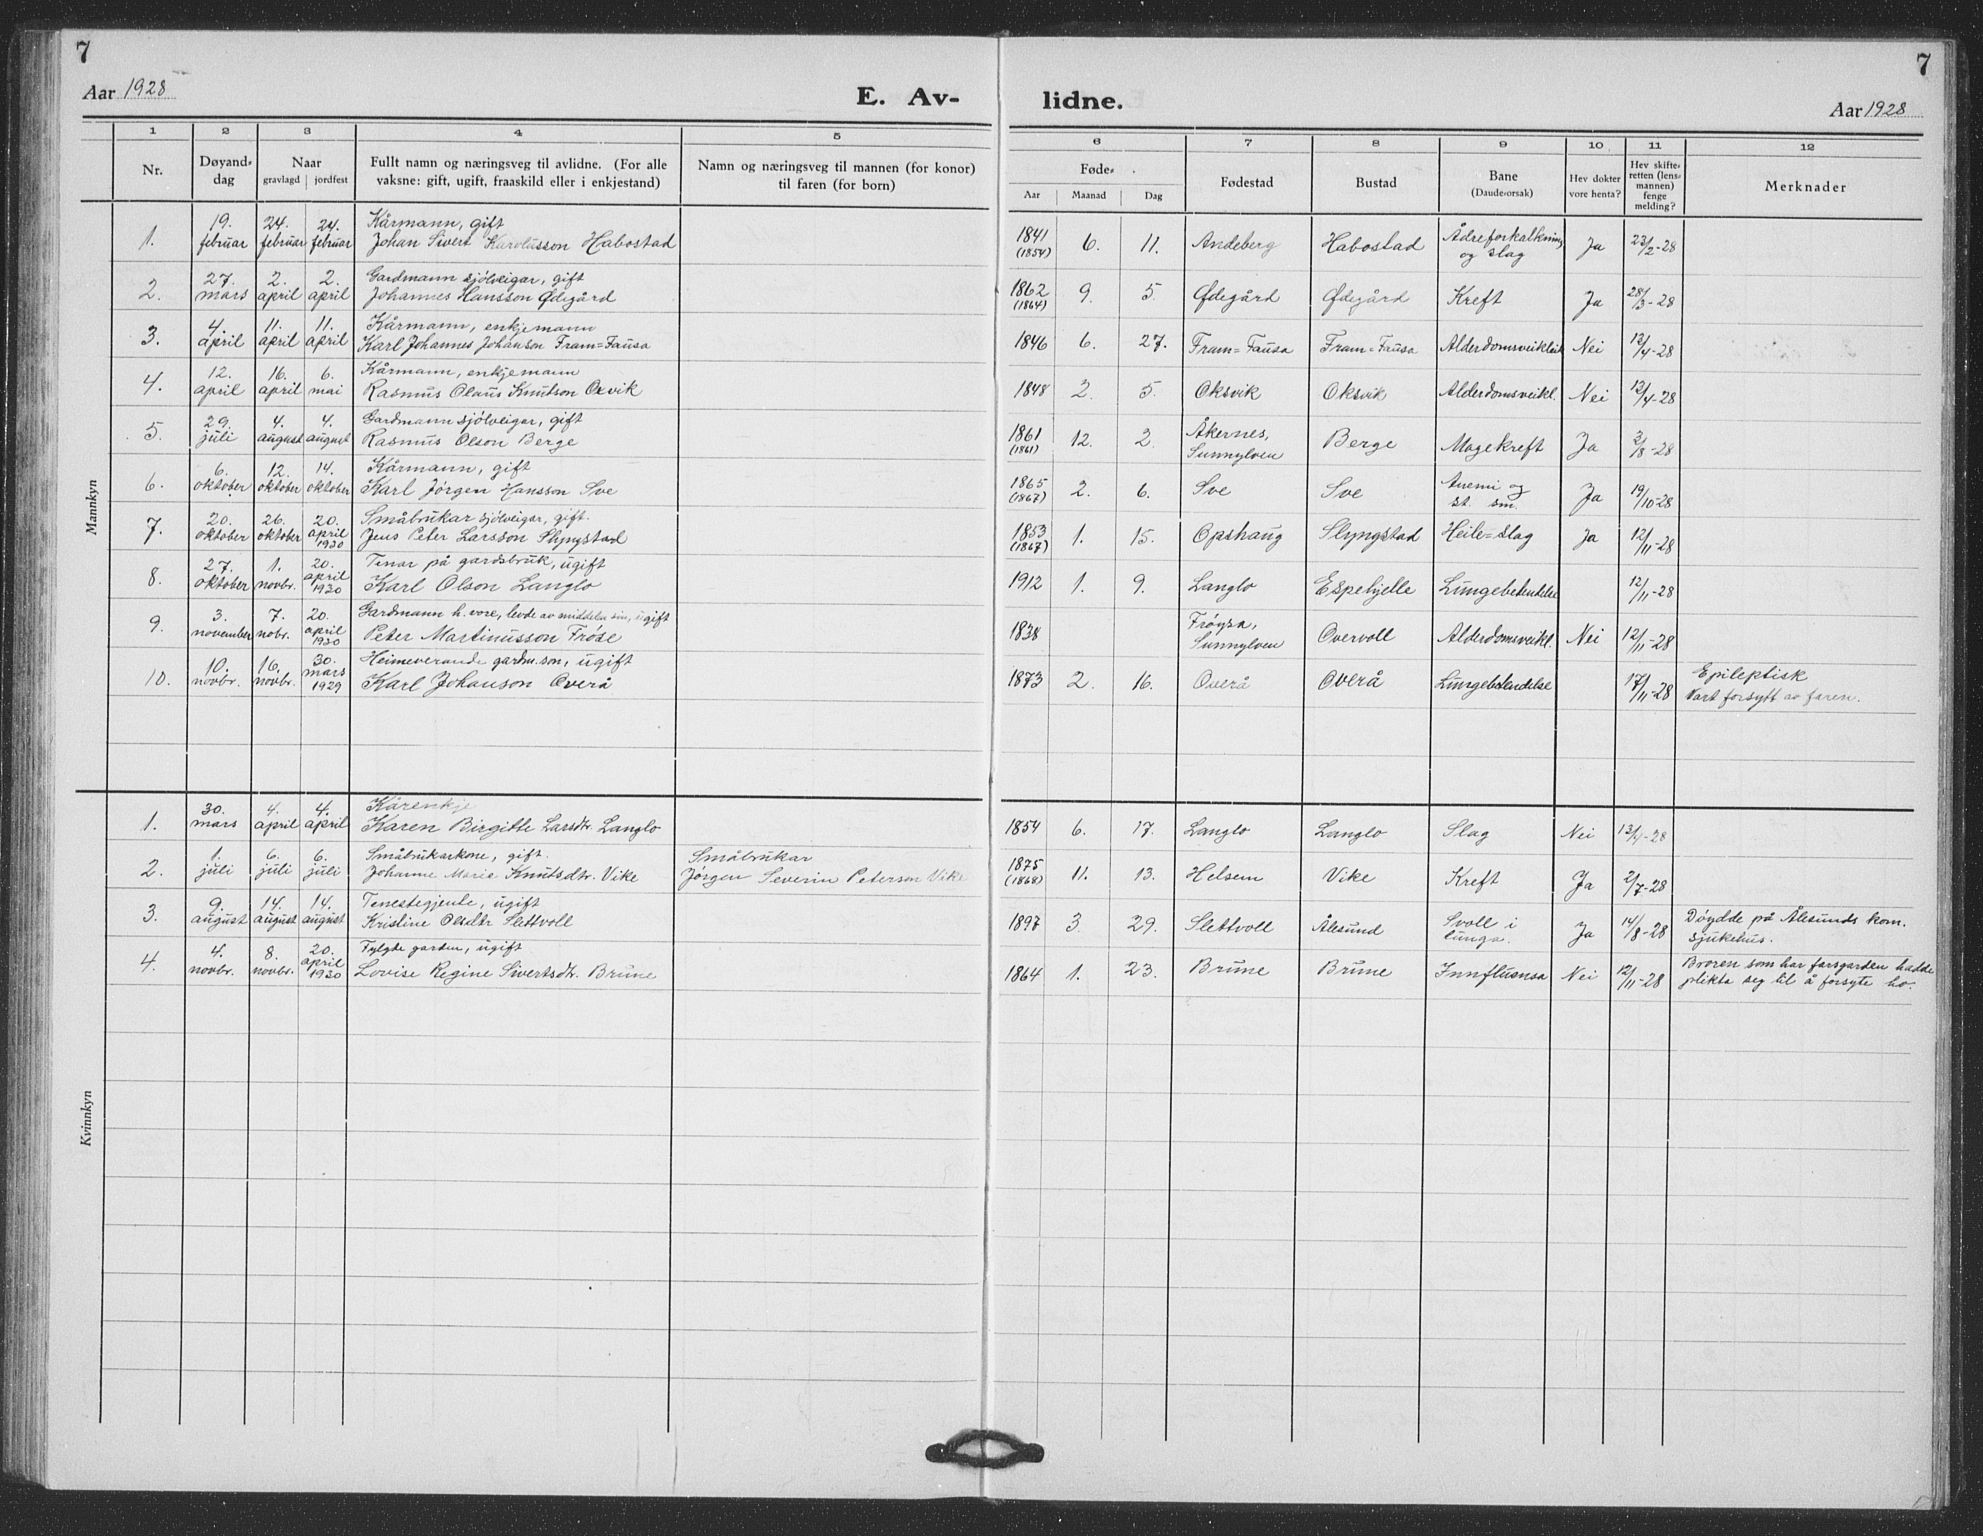 7
Aar 1928
E. Av-
1 2 3 4 5
Nr.
Døyand-
dag
Naar
gravlagd | jordfest
Fullt namn og næringsveg til avlidne. (For alle
vaksne: gift, ugift, fraaskild eller i enkjestand)
Namn og næringsveg til mannen (for konor)
til faren (for born)
Mannkyn
19. 24. 24. Kårmann, gift
1. februar februar februar Johan Sivert Karolusson Habostad
27. 2. 2. Gardmann sjølveigar, gift
2. mars april april Johannes Hansson Ødegård
4. 11. 11. Kårmann, enkjemann
3. april april april Karl Johannes Johanson Fram=Fausa
12. 16. 6. Kårmann, enkjemann
4. april april mai Rasmus Olaus Knutson Oxvik
29. 4. 4. Gardmann sjølveigar, gift
5. juli august august Rasmus Olson Berge
6. 12. 14. Kårmann, gift
6. oktober oktober oktober Karl Jørgen Hansson Sve
20. 26. 20. Småbrukar sjølveigar, gift.
7. oktober oktober april 1930 Jens Peter Larsson Slyngstad
27. 1. 20. Tenar på gardsbruk, ugift
8. oktober novbr. april 1930 Karl Olson Langlo
3. 7. 20. Gardmann h. vore, levde av midlela sin, ugift
9. november nobr. april 1930 Peter Martinusson Frøse
10. 16. 30. Heimeverande gardm.son, ugift
10. novbr. novbr. mars 1929 Karl Johanson Overå
Kvinnkyn
30. 4. 4. Kårenkje
1. mars april april Karen Birgitte Larsdtr. Langlo
1. 6. 6. Småbrukarkone, gift. Småbrukar
2. juli juli juli Johanne Marie Knutsdtr. Vike Jørgen Severin Peterson Vike
9. 14. 14. Tenestegjente, ugift
3. august august august Kristine Olsdtr Slettvoll
4. 8. 20. Fylgde garden, ugift
4. novbr. novbr. april 1930 Lovise Regine Sivertsdtr. Brune
7
lidne.
Aar 1928
6 7 8 9 10 11 12
Føde-
Aar Maanad Dag
Fødestad
Bustad
Bane
(Daude-orsak)
Hev dokter
vore henta?
Hev skifte-
retten (lens-
mannen)
fenge
melding?
Merknader
1841 (1854) 6. 11. Andeberg Habostad Ådreforkalkning og slag Ja 23/2-28
1862 (1864) 9. 5. Ødegård Ødegård Kreft Ja 28/3-28
1846 6. 27. Fram=Fausa Fram=Fausa Alderdomsveikleik Nei 12/4-28
1848 2. 5. Oksvik Oksvik Alderdomsveikl. Nei 12/4-28
1861 (1861) 12. 2. Åkernes, Sunnylven Berge Magekreft Ja 3/8-28
1865 (1867) 2. 6. Sve Sve Anemi og st. sm. Ja 19/10-28
1853 (1867) 1. 15. Opshaug Slyngstad Heile=slag Ja 12/11-28
1912 1. 9. Langlo Espehjelle Lungebetendelse 12/11-28
1838 Frøysa, Sunnylven Overvoll Alderdomsveikl. Nei 12/11-28
1873 2. 16. Overå Overå Lungebetendelse 17/11-28 Epileptisk
Vart forsytt av faren.
1854 6. 17. Langlo Langlo Slag Nei 13/4-28
1875 (1868) 11. 13. Helsem Vike Kreft Ja 2/7-28
1897 3. 29. Slettvoll Ålesund Svoll i lunga. Ja 14/8-28 Døydde på Ålesunds kom.
sjukehus.
1864 1. 23. Brune Brune Innfluensa Nei 12/11-28 Broren som har farsgarden hadde
plikta seg til å forsyte ho.